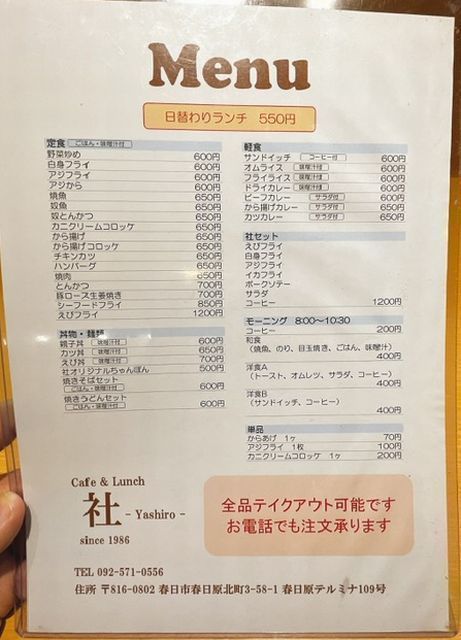 Menu
日替わりランチ 550円
定食 ごはん・味噌汁付
野菜炒め 600円
白身フライ 600円
アジフライ 600円
アジから 600円
焼魚 650円
奴魚 650円
奴とんかつ 650円
カニクリームコロッケ 650円
から揚げ 650円
から揚げコロッケ 650円
チキンカツ 650円
ハンバーグ 650円
焼肉 650円
とんかつ 700円
豚ロース生姜焼き 700円
シーフードフライ 850円
えびフライ 1200円
丼物・麺類
親子丼 味噌汁付 600円
カツ丼 味噌汁付 650円
えび丼 味噌汁付 700円
社オリジナルちゃんぽん 500円
焼きそばセット
ごはん・味噌汁付 600円
焼きうどんセット
ごはん・味噌汁付 600円
軽食
サンドイッチ コーヒー付 600円
オムライス 味噌汁付 600円
フライライス 味噌汁付 600円
ドライカレー 味噌汁付 600円
ビーフカレー サラダ付 600円
から揚げカレー サラダ付 650円
カツカレー サラダ付 650円
社セット
えびフライ
白身フライ
アジフライ
イカフライ
ポークソテー
サラダ
コーヒー 1200円
モーニング 8:00～10:30
コーヒー 200円
和食
(焼魚、のり、目玉焼き、ごはん、味噌汁)
400円
洋食A
(トースト、オムレツ、サラダ、コーヒー)
400円
洋食B
(サンドイッチ、コーヒー)
400円
単品
からあげ 1ヶ 70円
アジフライ 1枚 100円
カニクリームコロッケ 1ヶ 200円
Cafe & Lunch
社 - Yashiro -
since 1986
全品テイクアウト可能です
お電話でも注文承ります
TEL 092-571-0556
住所 〒816-0802 春日市春日原北町3-58-1 春日原テルミナ109号